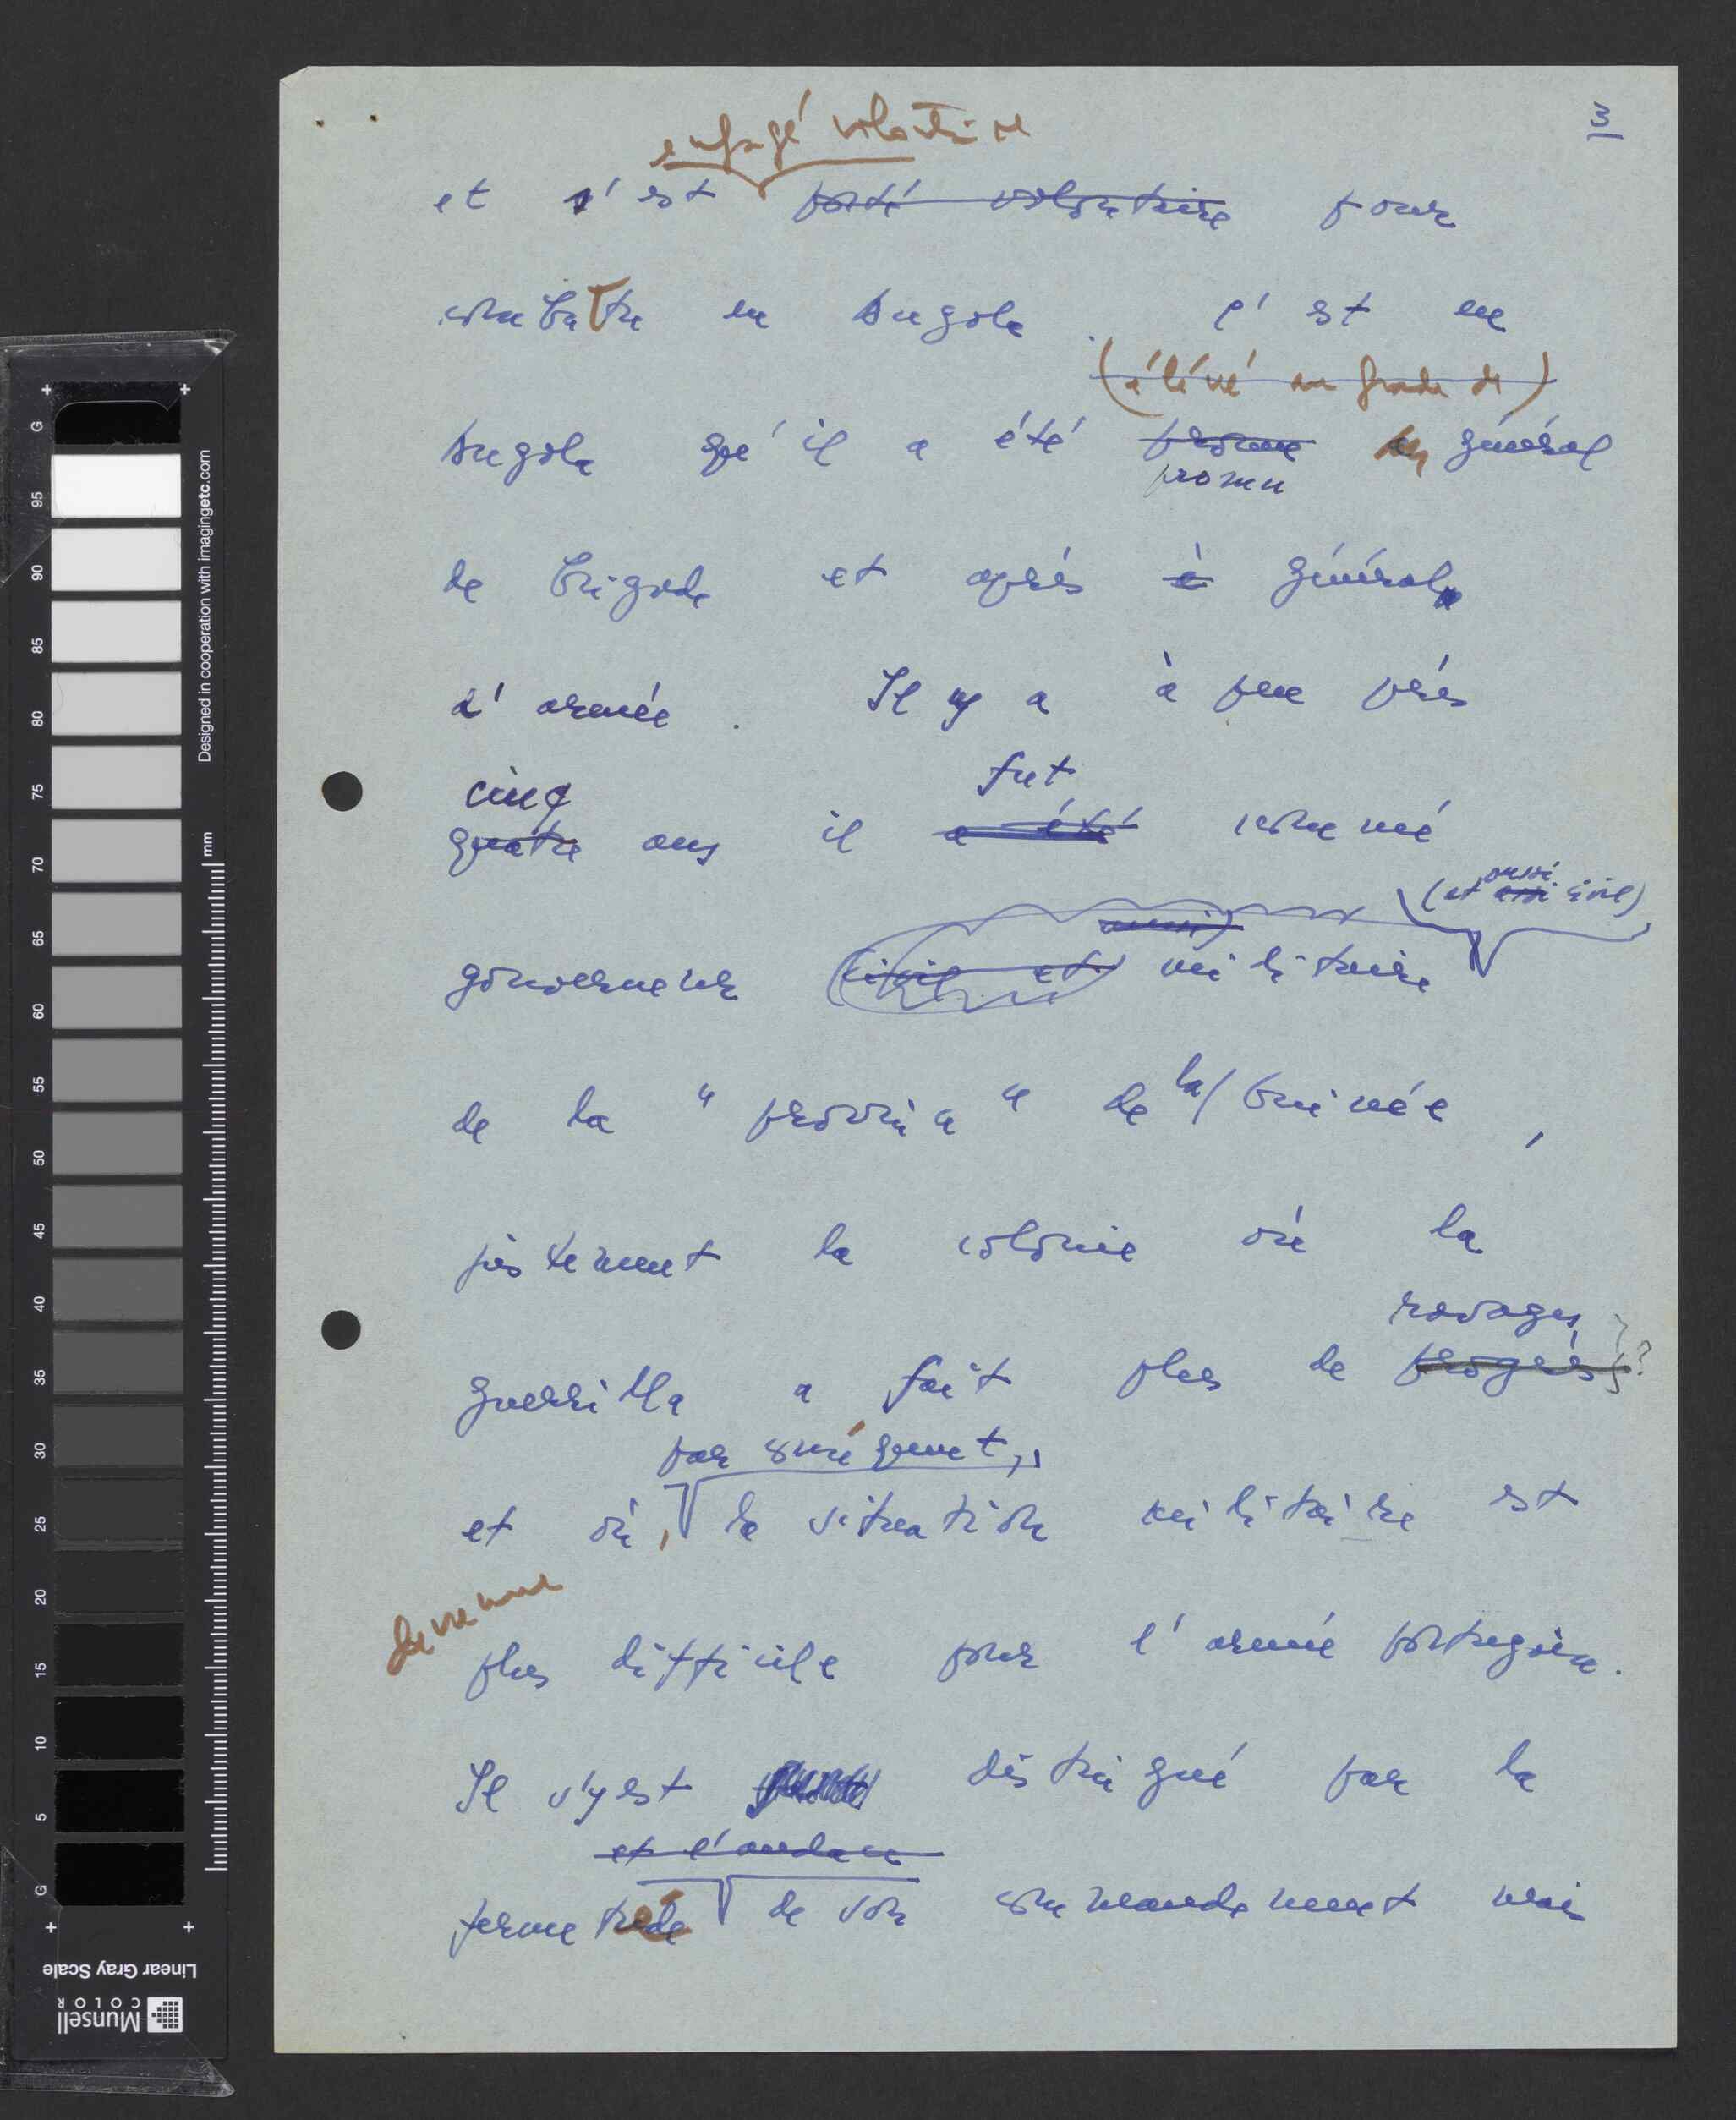 3
engagé volontaire
et s'est porté volontaire pour
combattre en Angola. C'est en
(élévé au grade de)
Angola qu'il a été promu général
promu
de brigade et après à général
d'armée. Il y a à peu près
cinq fut
quatre ans il a été nommé
(et aussi civil)
aussi)
gouverneur (civil et militaire
de la "province" de la/ Guinée,
justement la colonie où la
ravages
guerrilla a fait plus de progrès ?
par conséquent,
et où, la situation militaire est
devenue
plus difficile pour l'armée portugaise.
Il s'y est distingué par la
et l'audace
fermeté de son commandement mais
Designed in cooperation with imagingetc.com
mm
G 95 90 85 80 75 70 65 60 55 50 45 40 35 30 25 20 15 10 5 G
Linear Gray Scale
Munsell
COLOR